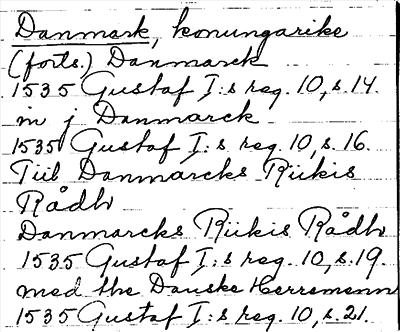 Danmark, konungarike
(forts.) Danmarck
1535 Gustaf I:s reg. 10, s. 14.
in j Danmarck
1535 Gustaf I:s reg. 10, s. 16.
Tiil Danmarcks Riikis
Rådh
Danmarcks Riikis Rådh
1535 Gustaf I:s reg. 10, s. 19.
med the Danske Herremenn
1535 Gustaf I:s reg. 10, s. 21.